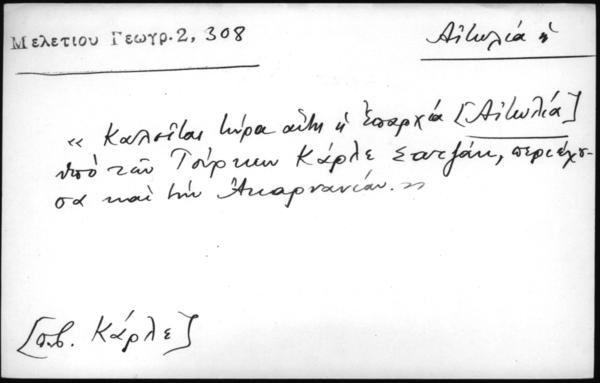 Μελετίου Γεωγρ.2, 308
Αἰτωλία ἡ
« Καλεῖται τώρα αὕτη ἡ Ἐπαρχία [Αἰτωλία]
ὑπὸ τῶν Τούρκων Κάρλε Σαντζάκ, περιέχου-
σα καὶ τὴν Ἀκαρνανίαν. »
[πβ. Κάρλε]